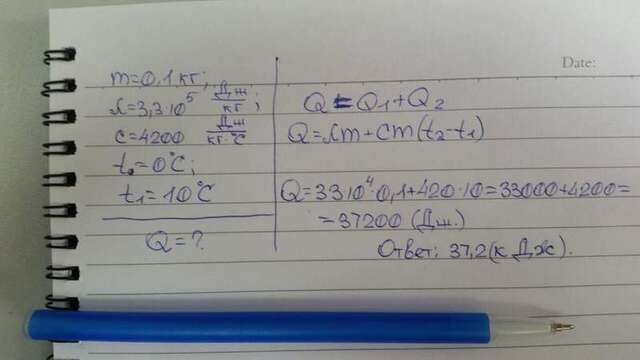 Date:
m=0,1 кг;
λ=3,3·10⁵ Дж/кг;
c=4200 Дж/кг·°C
t₀=0°C;
t₁=10°C
Q=?
Q=Q₁+Q₂
Q=λm+cm(t₂-t₁)
Q=33·10⁴·0,1+420·10=33000+4200=
=37200 (Дж.)
Ответ: 37,2(кДж).